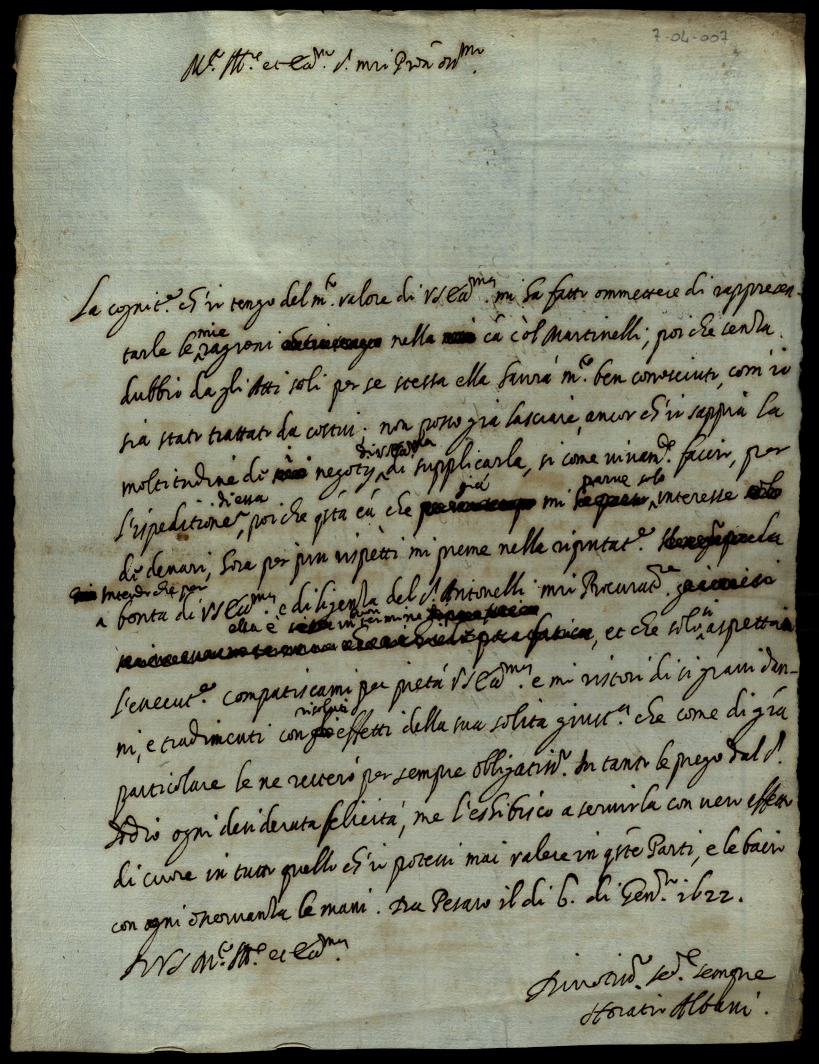 7-04-007
M.to Ill.re et Ecc.mo S.r mio Pron oss.mo
La cognit.e ch'io tengo del m.to valore di V S Ecc.ma mi ha fatto ommettere di rappresen-
tarle le mie ragioni nella cã col Martinelli; poi che senza
dubbio da gli Atti soli per se stessa ella havrà m.to ben conosciuto, com'io
sia stato trattato da costui; non posso già lasciare, ancor ch'io sappia la
moltitudine di negotij di V S Ecc.ma di supplicarla, si come vivam.te faccio, per
l'ispeditione di essa, poi che q̃sta cã che già mi parve solo interesse
di denari, hora per più rispetti mi preme nella riputat.e
Intendo che per
a bontà di V S Ecc.ma e diligenza del S.r Antonelli mio Procurat.re
ella è in termine, et che solo si aspetta
l'essecut.e compatiscami per pietà V S Ecc.ma e mi ristori di si gravi dan-
ni, e tradimenti con gli effetti della sua solita giust.a che come di grã
particolare le ne resterò per sempre obligatiss.o In tanto le prego dal S.r
Iddio ogni desiderata felicità, me l'essibisco a servirla con vero effetto
di cuore in tutto quello ch'io potessi mai valere in q̃ste Parti, e le bacio
con ogni osservanza le mani. Da Pesaro il di 6. di Gen.o 1622.
D V S M.to Ill.re et Ecc.ma
Divotiss.o se.re sempre
Horatio Albani.